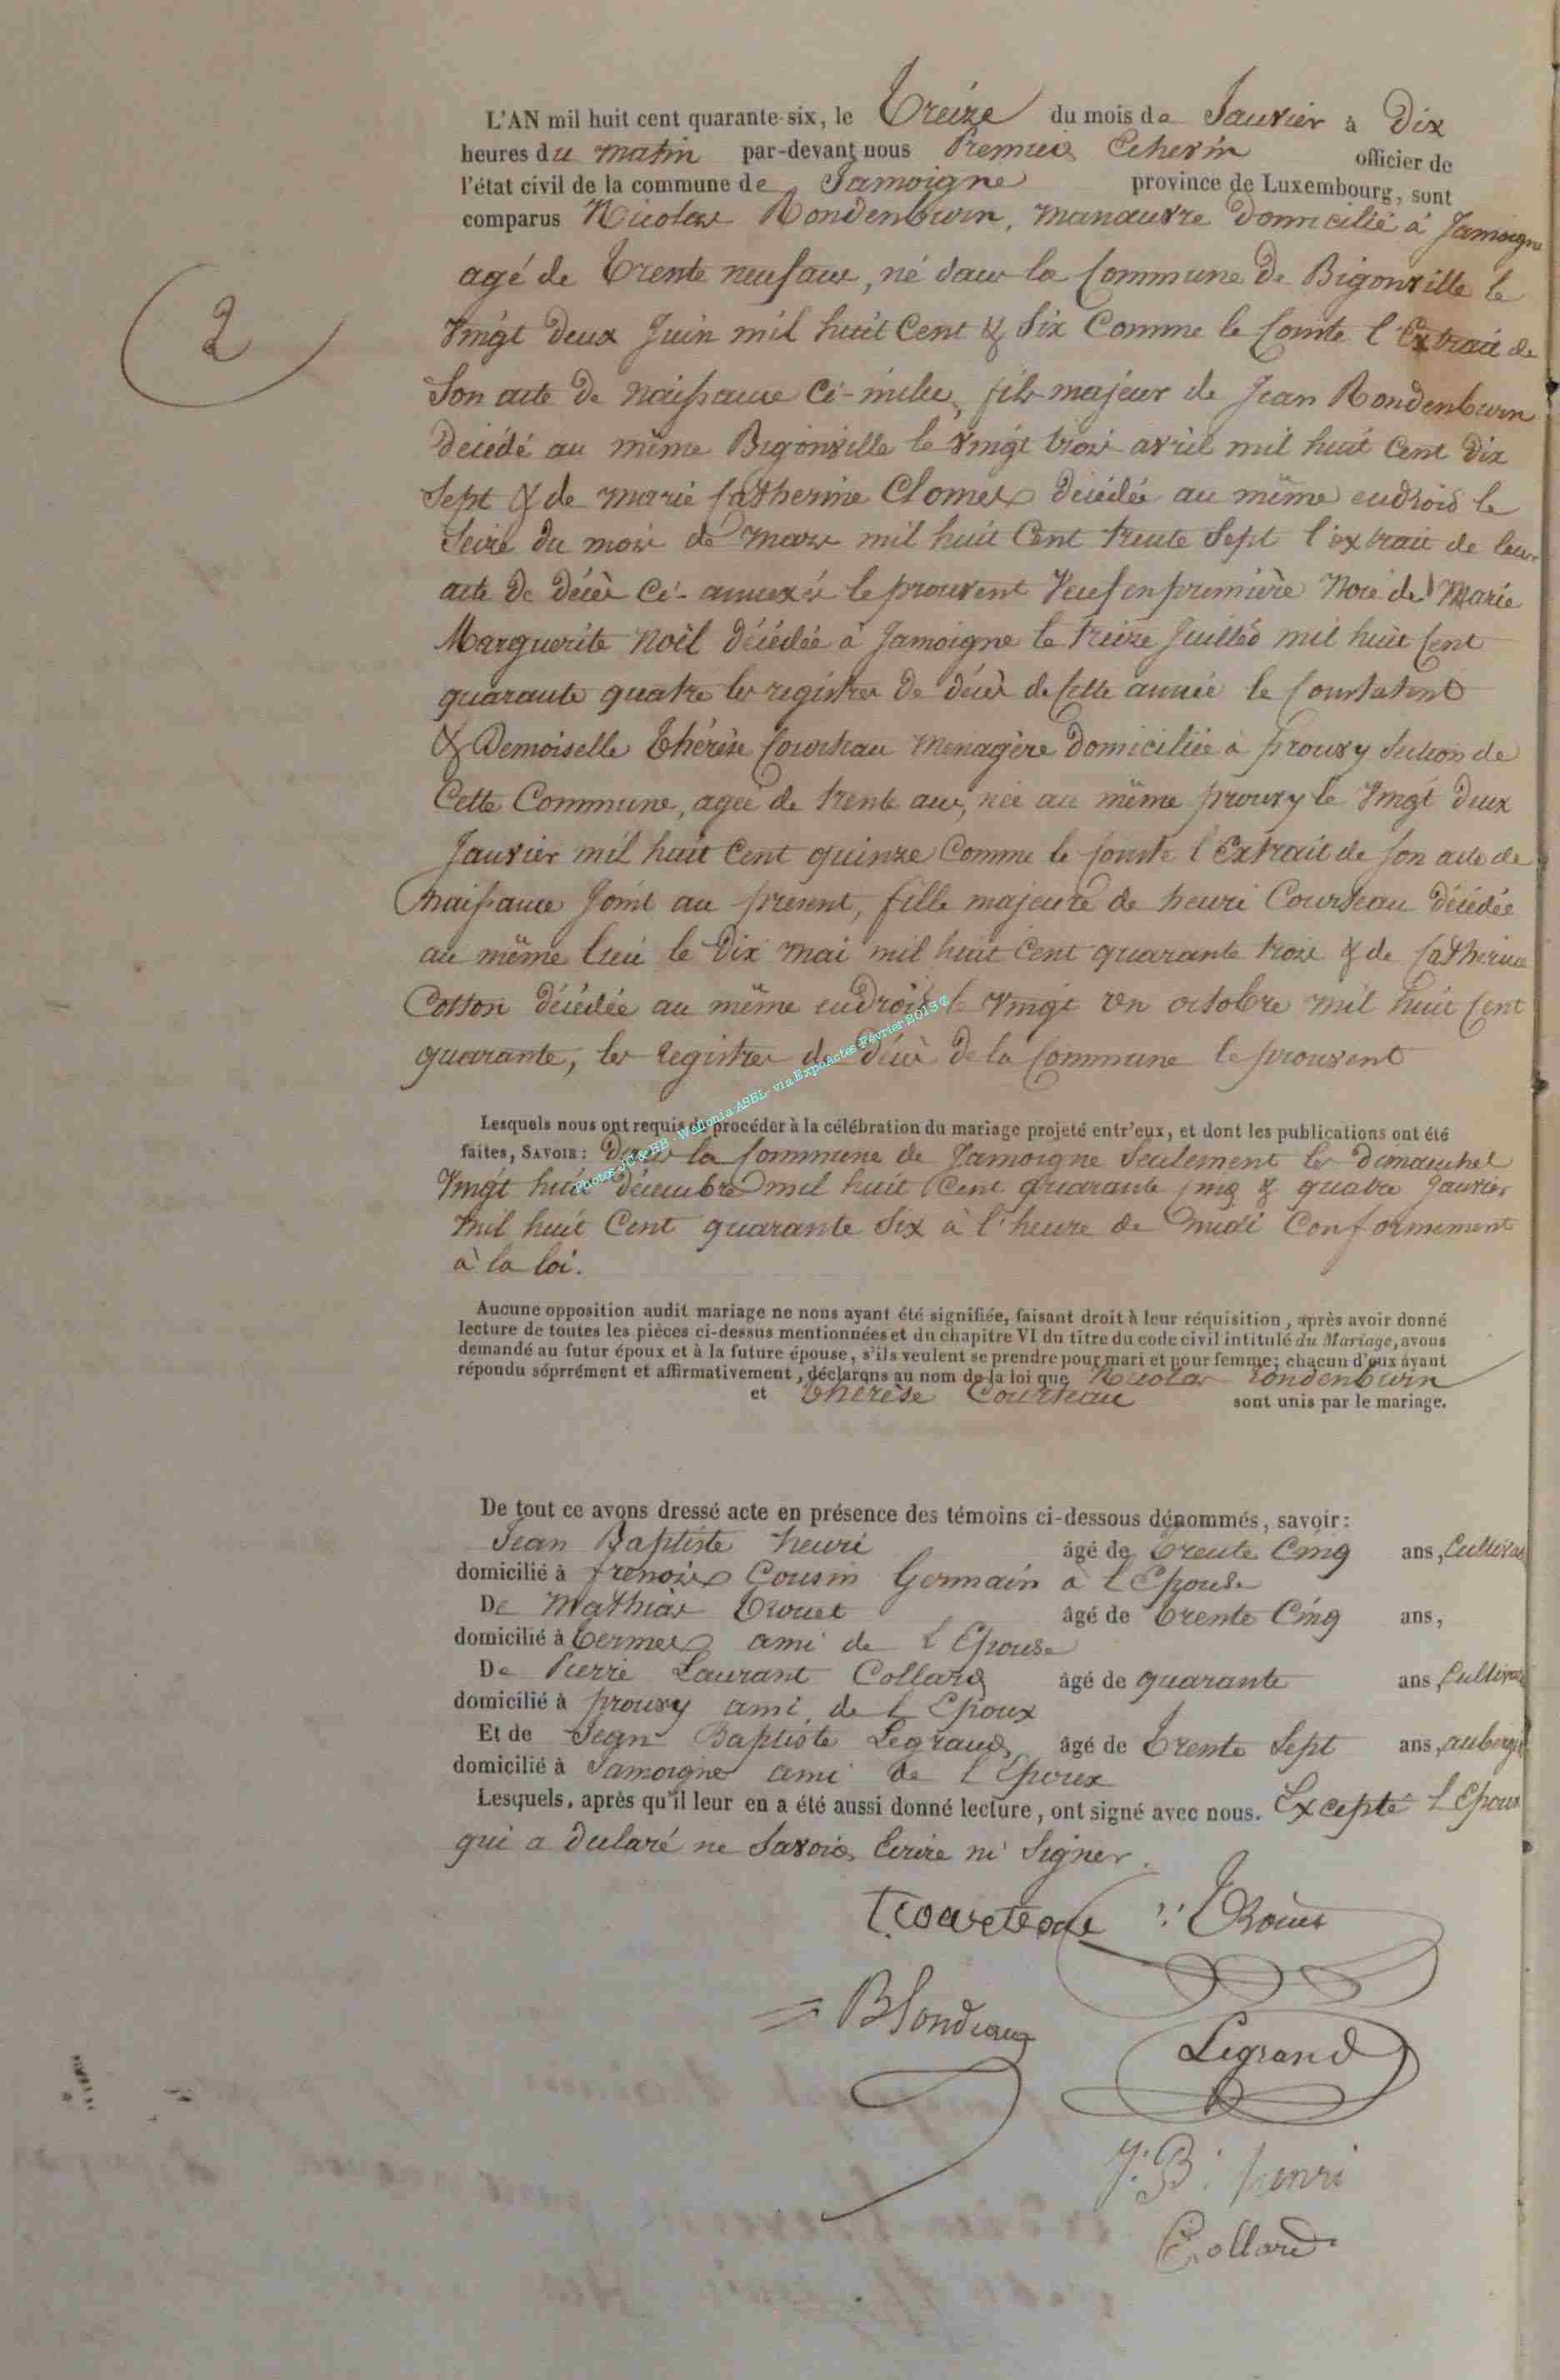 L'AN mil huit cent quarante-six, le Treize du mois de Janvier à Dix
heures du matin par-devant nous Premier Echevin officier de
l'état civil de la commune de Jamoigne province de Luxembourg, sont
comparus Nicolas Rondenburn, manœuvre Domicilié à Jamoigne
agé de Trente neuf ans, né dans la Commune de Bigonville le
Vingt deux Juin mil huit Cent & Six Comme le Conste l'Extrait de
2
Son acte de Naissance Ci-inclu, fils majeur de Jean Rondenburn
Décédé au même Bigonville le Vingt trois avril mil huit Cent Dix
Sept & de Marie Catherine Clomes Décédée au même endroit le
Seize du mois de Mars mil huit Cent trente Sept l'extrait de leur
acte De décès Ci-annexés le prouvent Veuf en première Noce de Marie
Marguerite Noël Décédée à Jamoigne le treize Juillet mil huit Cent
quarante quatre les registres De décès de Cette année le Constatent
& Demoiselle Thérèse Courteau Menagère Domiciliée à prouvy Section de
Cette Commune, agée de trente ans, née au même prouvy le Vingt deux
Janvier mil huit Cent quinze Comme le Conste l'Extrait de Son acte de
Naissance Joint au présent, fille majeure de henri Courteau Décédée
au même lieu le Dix mai mil huit Cent quarante trois & de Catherine
Cotton décédée au même endroit le Vingt un octobre mil huit Cent
quarante, les Registres de Décès de la Commune le prouvent
Photos JC & BB - Wallonia ASBL - via ExpoActes Février 2015 ©
Lesquels nous ont requis de procéder à la célébration du mariage projeté entr'eux, et dont les publications ont été
faites, SAVOIR: Dans la Commune de Jamoigne Seulement les dimanches
Vingt huit décembre mil huit Cent quarante cinq & quatre Janvier
mil huit Cent quarante Six à l'heure de midi Conformement
à la loi.
Aucune opposition audit mariage ne nous ayant été signifiée, faisant droit à leur réquisition, après avoir donné
lecture de toutes les pièces ci-dessus mentionnées et du chapitre VI du titre du code civil intitulé du Mariage, avons
demandé au futur époux et à la future épouse, s'ils veulent se prendre pour mari et pour femme; chacun d'eux ayant
répondu séprrément et affirmativement, déclarons au nom de la loi que Nicolas Rondenburn
et Thérèse Courteau sont unis par le mariage.
De tout ce avons dressé acte en présence des témoins ci-dessous dénommés, savoir:
Jean Baptiste henri âgé de Trente Cinq ans, Cultivat
domicilié à frenois Cousin Germain à l'Epouse
De Mathias Trouet âgé de Trente Cinq ans,
domicilié à Termes ami de l'Epouse
De Pierre Laurant Collard âgé de quarante ans, Cultivat
domicilié à prouvy ami de l'Epoux
Et de Jean Baptiste Legrand âgé de Trente Sept ans, aubergi
domicilié à Jamoigne ami de l'Epoux
Lesquels, après qu'il leur en a été aussi donné lecture, ont signé avec nous. Excepté l'Epoux
qui a declaré ne Savoir Ecrire ni Signer.
Trouet
Blondeau
Legrand
J. B. henri
Collard